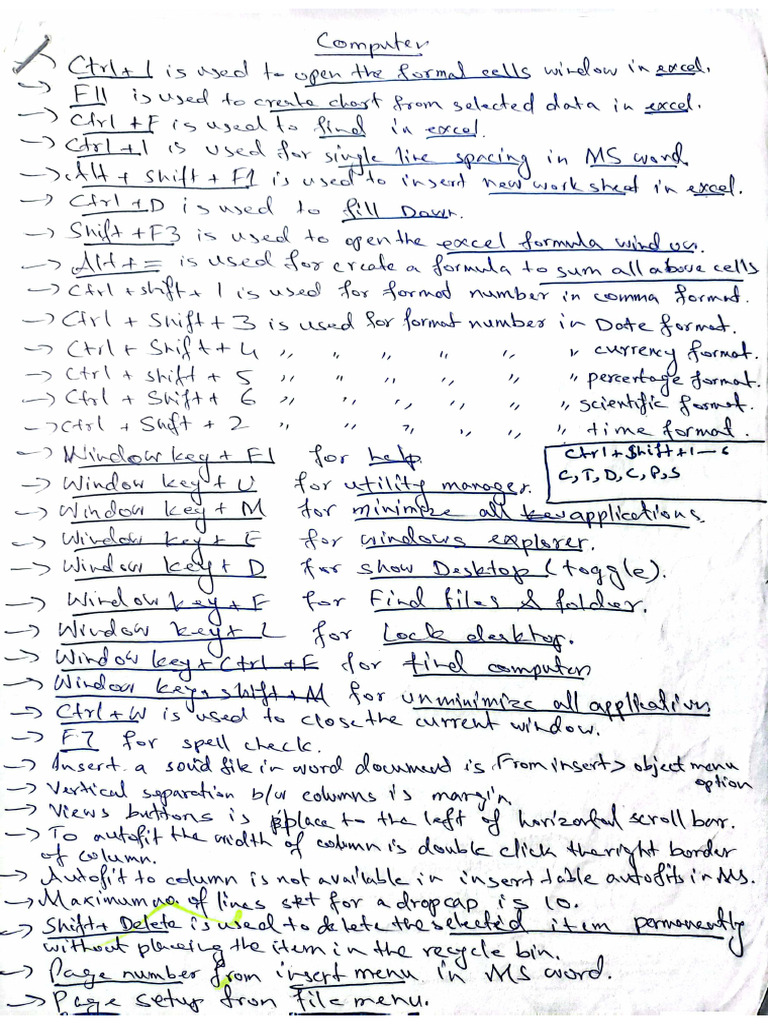 Computer
→ Ctrl+1 is used to open the formal cells window in excel.
→ F11 is used to create chart from selected data in excel.
→ Ctrl + F is used to find in excel.
→ Ctrl+1 is used for single line spacing in MS word.
→ Alt + Shift + F1 is used to insert new work sheet in excel.
→ Ctrl +D is used to fill Down.
→ Shift +F3 is used to open the excel formula window.
→ Alt + = is used for create a formula to sum all above cells
→ Ctrl + shift + 1 is used for format number in comma format.
→ Ctrl + Shift + 3 is used for format number in Date format.
→ Ctrl + Shift + 4 " " " " " " currency format.
→ Ctrl + shift + 5 " " " " " " percentage format.
→ Ctrl + Shift + 6 " " " " " " scientific format.
→ Ctrl + Shift + 2 " " " " " " time format.
→ Window key + F1 for help.
Ctrl + Shift + 1 — 6
C, T, D, C, P, S
→ Window key + U for utility manager.
→ Window key + M for minimize all applications.
→ Window key + E for windows explorer.
→ Window key + D for show Desktop (toggle).
→ Window key + F for Find files & folder.
→ Window key + L for Lock desktop.
→ Window key + Ctrl + F for find computer
→ Window key + shift + M for unminimize all application
→ Ctrl + W is used to close the current window.
→ F7 for spell check.
→ Insert a sound file in word document is From insert > object menu
option
→ Vertical separation b/w columns is margin.
→ Views buttons is place to the left of horizontal scroll bar.
→ To autofit the width of column is double click the right border
of column.
→ Autofit to column is not available in insert table autofits in MS.
→ Maximum no. of lines set for a dropcap is 10.
→ Shift + Delete is used to delete the selected item permanently
without placing the item in the recycle bin.
→ Page number from insert menu in MS word.
→ Page setup from file menu.